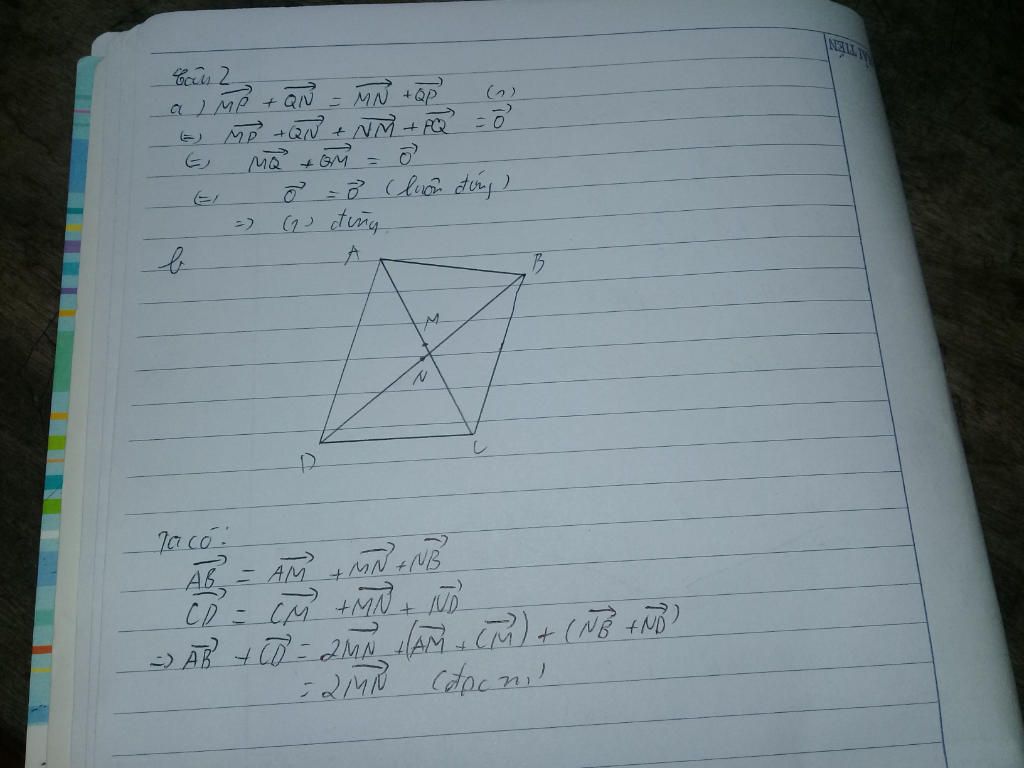 Câu 2
a) MP→ + QN→ = MN→ + QP→ (1)
(=) MP→ + QN→ + NM→ + PQ→ = 0→
(=) MQ→ + QM→ = 0→
(=) 0→ = 0→ (luôn đúng)
=> (1) đúng
b
A
B
M
N
D
C
Ta có:
AB→ = AM→ + MN→ + NB→
CD→ = CM→ + MN→ + ND→
=> AB→ + CD→ = 2MN→ + (AM→ + CM→) + (NB→ + ND→)
= 2MN→ (đpcm)